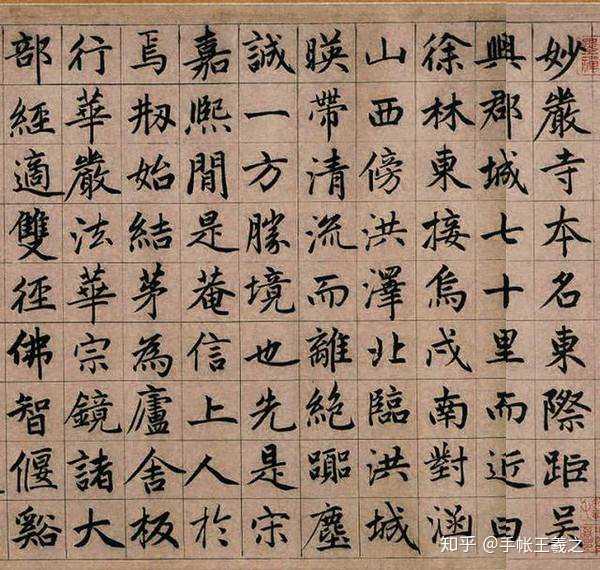 妙嚴寺本名東際距吳
興郡城七十里而近曰
徐林東接烏戍南對涵
山西傍洪澤北臨洪城
暎帶清流而離絕塵
誠一方勝境也先是宋
嘉熈閒是菴信上人於
焉刱始結茅為廬舍板
行華嚴法華宗鏡諸大
部經適雙徑佛智偃谿
知乎 @手帐王羲之